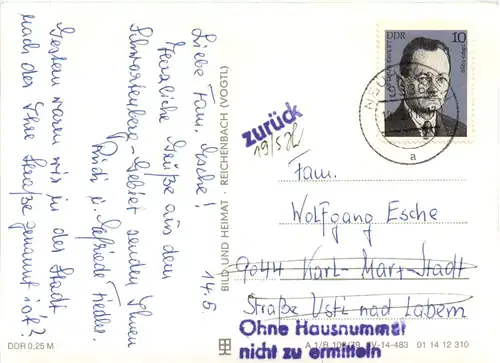 14.5.
Liebe Fam. Esche!
Herzliche Grüße aus dem
Schwartenberg-Gebiet senden Ihnen
Erich u. Elfriede Fiedler.
Gestern waren wir in der Stadt
nach der Ihre Straße genannt ist?
BILD UND HEIMAT · REICHENBACH (VOGTL)
DDR
10
a
zurück
19/5
Fam.
Wolfgang Esche
9044 Karl-Marx-Stadt
Straße Usti nad Labem
Ohne Hausnummer
nicht zu ermitteln
DDR 0,25 M
V-14-483 01 14 12 310